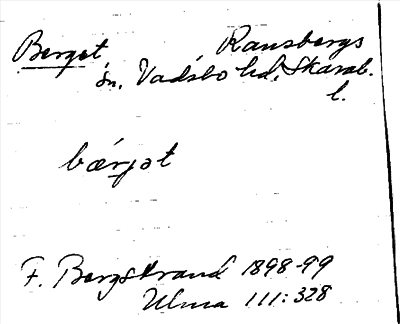 Berget, Ransbergs
sn. Vadsbo hd, Skarab.
l.
bærjət
F. Bergstrand 1898-99
Ulma 111:328